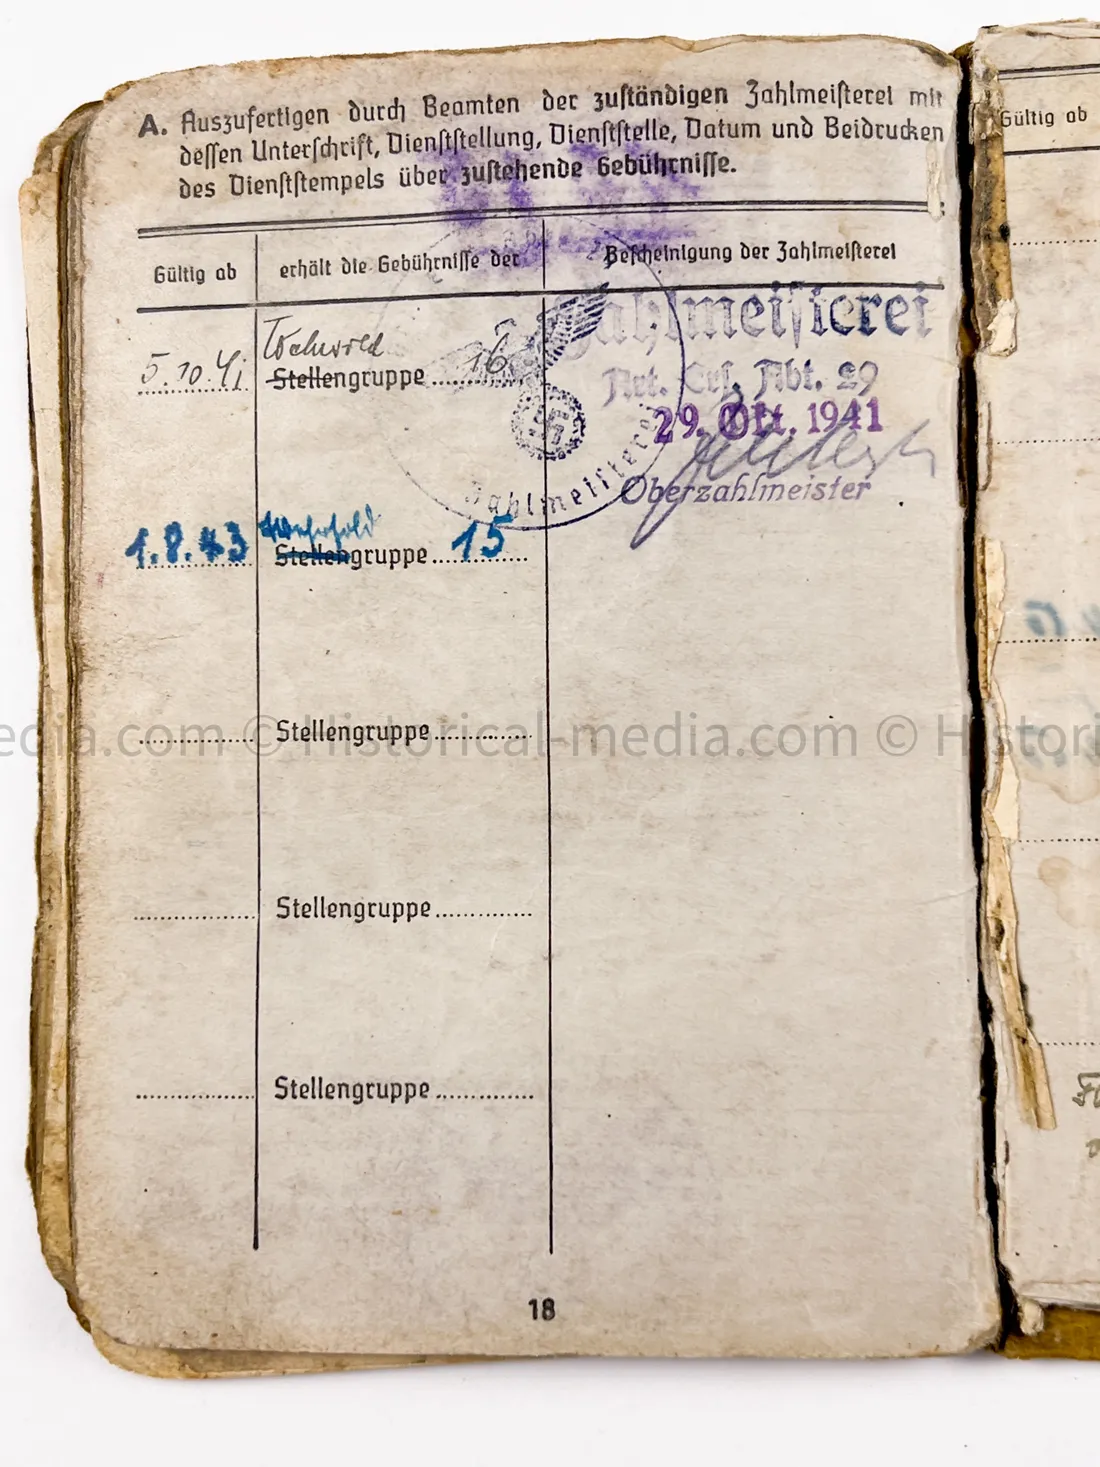 A. Auszufertigen durch Beamten der zuständigen Zahlmeisterei mit
dessen Unterschrift, Dienststellung, Dienststelle, Datum und Beidrucken
des Dienststempels über zustehende Gebührnisse.
Gültig ab
erhält die Gebührnisse der
Bescheinigung der Zahlmeisterei
5.10.41
Wehrsold
Stellengruppe 16
Zahlmeisterei
Art. Ers. Abt. 29
29. Okt. 1941
Oberzahlmeister
Zahlmeisterei
1.8.43
Wehrsold
Stellengruppe 15
Stellengruppe
Stellengruppe
Stellengruppe
18
Gültig ab
edia.com © Historical-media.com © Histori